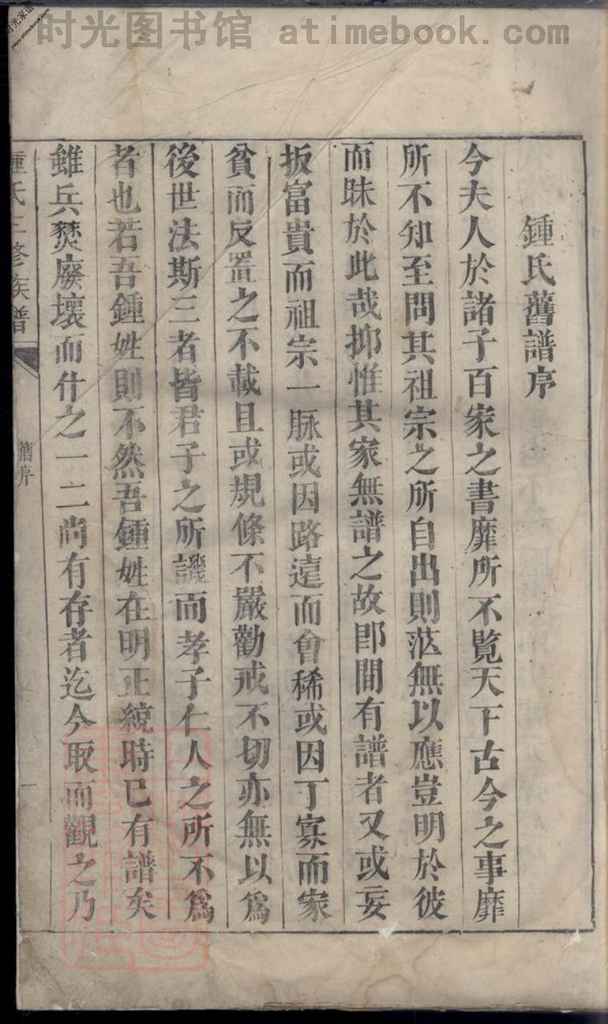 时光图书馆 atimebook.com
鍾氏舊譜序
今夫人於諸子百家之書靡所不覧天下古今之事靡
所不知至問其祖宗之所自出則茫無以應豈明於彼
而昧於此哉抑惟其家無譜之故卽間有譜者又或妄
扳富貴而祖宗一脉或因路遠而會稀或因丁寡而家
貧而反置之不載且或規條不嚴勸戒不切亦無以爲
後世法斯三者皆君子之所譏而孝子仁人之所不爲
者也若吾鍾姓則不然吾鍾姓在明正統時已有譜矣
雖兵燹廢壞而什之一二尚有存者迄今取而觀之乃
鍾氏三修族譜
舊序
一